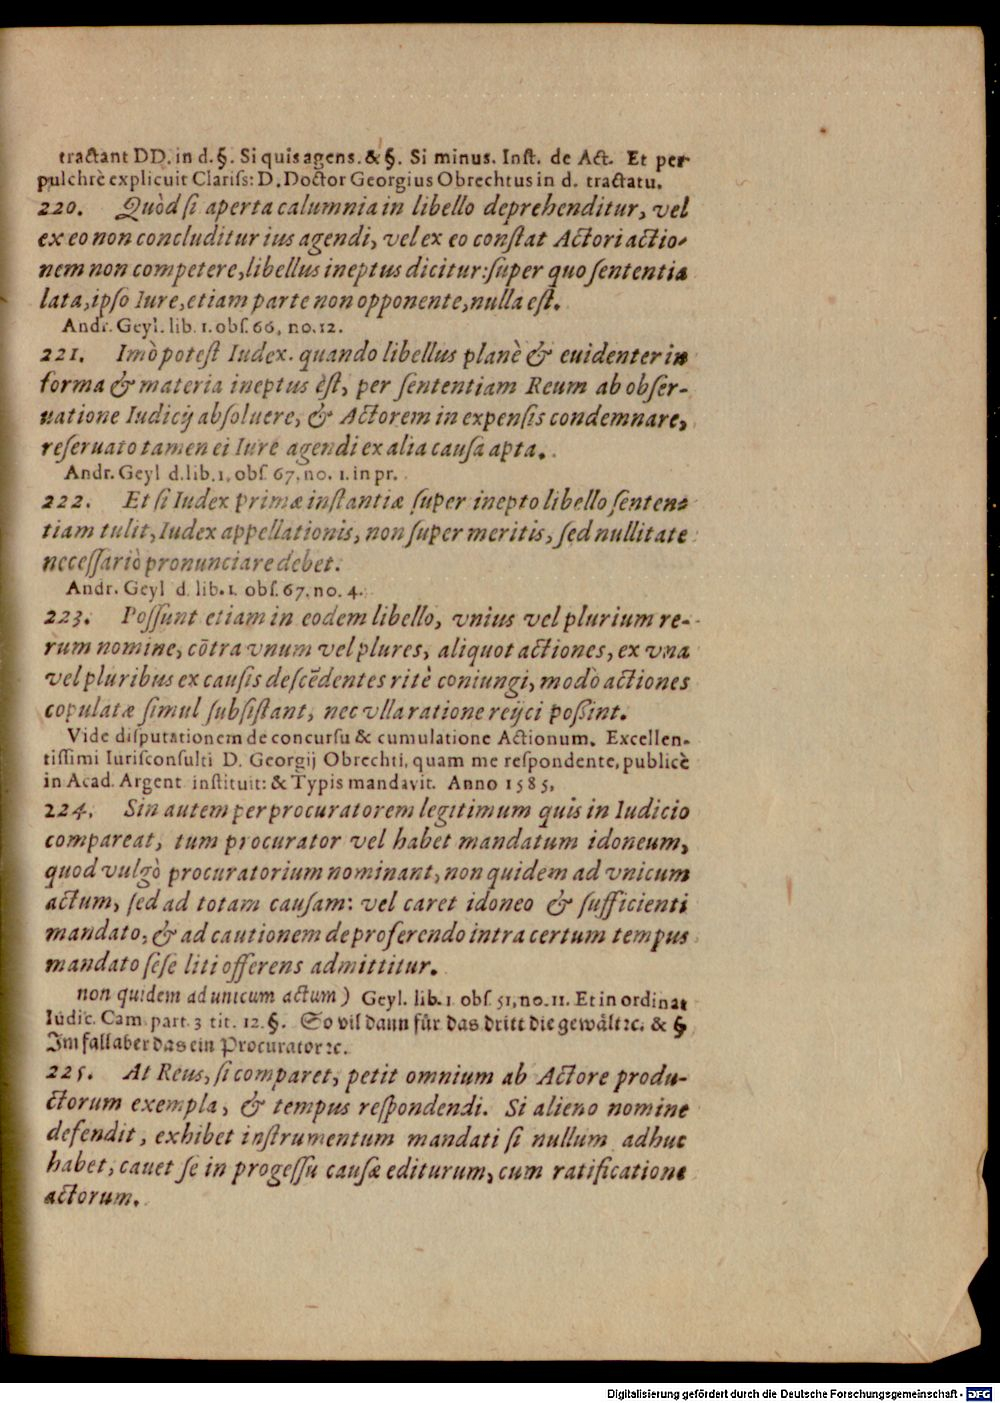 tractant DD. in d. §. Si quis agens. & §. Si minus. Inſt. de Act. Et per
pulchrè explicuit Clariſs: D. Doctor Georgius Obrechtus in d. tractatu.
220. Quòd ſi aperta calumnia in libello deprehenditur, vel
ex eo non concluditur ius agendi, vel ex eo conſtat Actori actio-
nem non competere, libellus ineptus dicitur: ſuper quo ſententia
lata, ipſo Iure, etiam parte non opponente, nulla eſt.
Andr. Geyl. lib. 1. obſ. 66, no. 12.
221. Imò poteſt Iudex. quando libellus planè & euidenter in
forma & materia ineptus èſt, per ſententiam Reum ab obſer-
uatione Iudicij abſoluere, & Actorem in expenſis condemnare,
reſeruato tamen ei Iure agendi ex alia cauſa apta.
Andr. Geyl d. lib. 1, obſ. 67, no. 1. in pr.
222. Et ſi Iudex primæ inſtantiæ ſuper inepto libello ſenten-
tiam tulit, Iudex appellationis, non ſuper meritis, ſed nullitate
neceſſariò pronunciare debet.
Andr. Geyl d. lib. 1. obſ. 67, no. 4.
223. Poſſunt etiam in eodem libello, vnius vel plurium re-
rum nomine, cōtra vnum vel plures, aliquot actiones, ex vna
vel pluribus ex cauſis deſcēdentes ritè coniungi, modò actiones
copulatæ ſimul ſubſiſtant, nec vlla ratione reijci poßint.
Vide diſputationem de concurſu & cumulatione Actionum. Excellen-
tiſſimi Iuriſconſulti D. Georgij Obrechti, quam me reſpondente, publicè
in Acad. Argent inſtituit: & Typis mandavit. Anno 1585,
224. Sin autem per procuratorem legitimum quis in Iudicio
compareat, tum procurator vel habet mandatum idoneum,
quod vulgò procuratorium nominant, non quidem ad vnicum
actum, ſed ad totam cauſam: vel caret idoneo & ſufficienti
mandato, & ad cautionem de proferendo intra certum tempus
mandato ſeſe liti offerens admittitur.
non quidem ad unicum actum) Geyl. lib. 1 obſ. 51, no. 11. Et in ordinat
Iudic. Cam. part. 3 tit. 12. §. So vil dann für das dritt die gewält ꝛc. & §
Im fall aber das ein Procurator ꝛc.
225. At Reus, ſi comparet, petit omnium ab Actore produ-
ctorum exempla, & tempus reſpondendi. Si alieno nomine
defendit, exhibet inſtrumentum mandati ſi nullum adhuc
habet, cauet ſe in progeſſu cauſæ editurum, cum ratificatione
actorum.
Digitalisierung gefördert durch die Deutsche Forschungsgemeinschaft - DFG